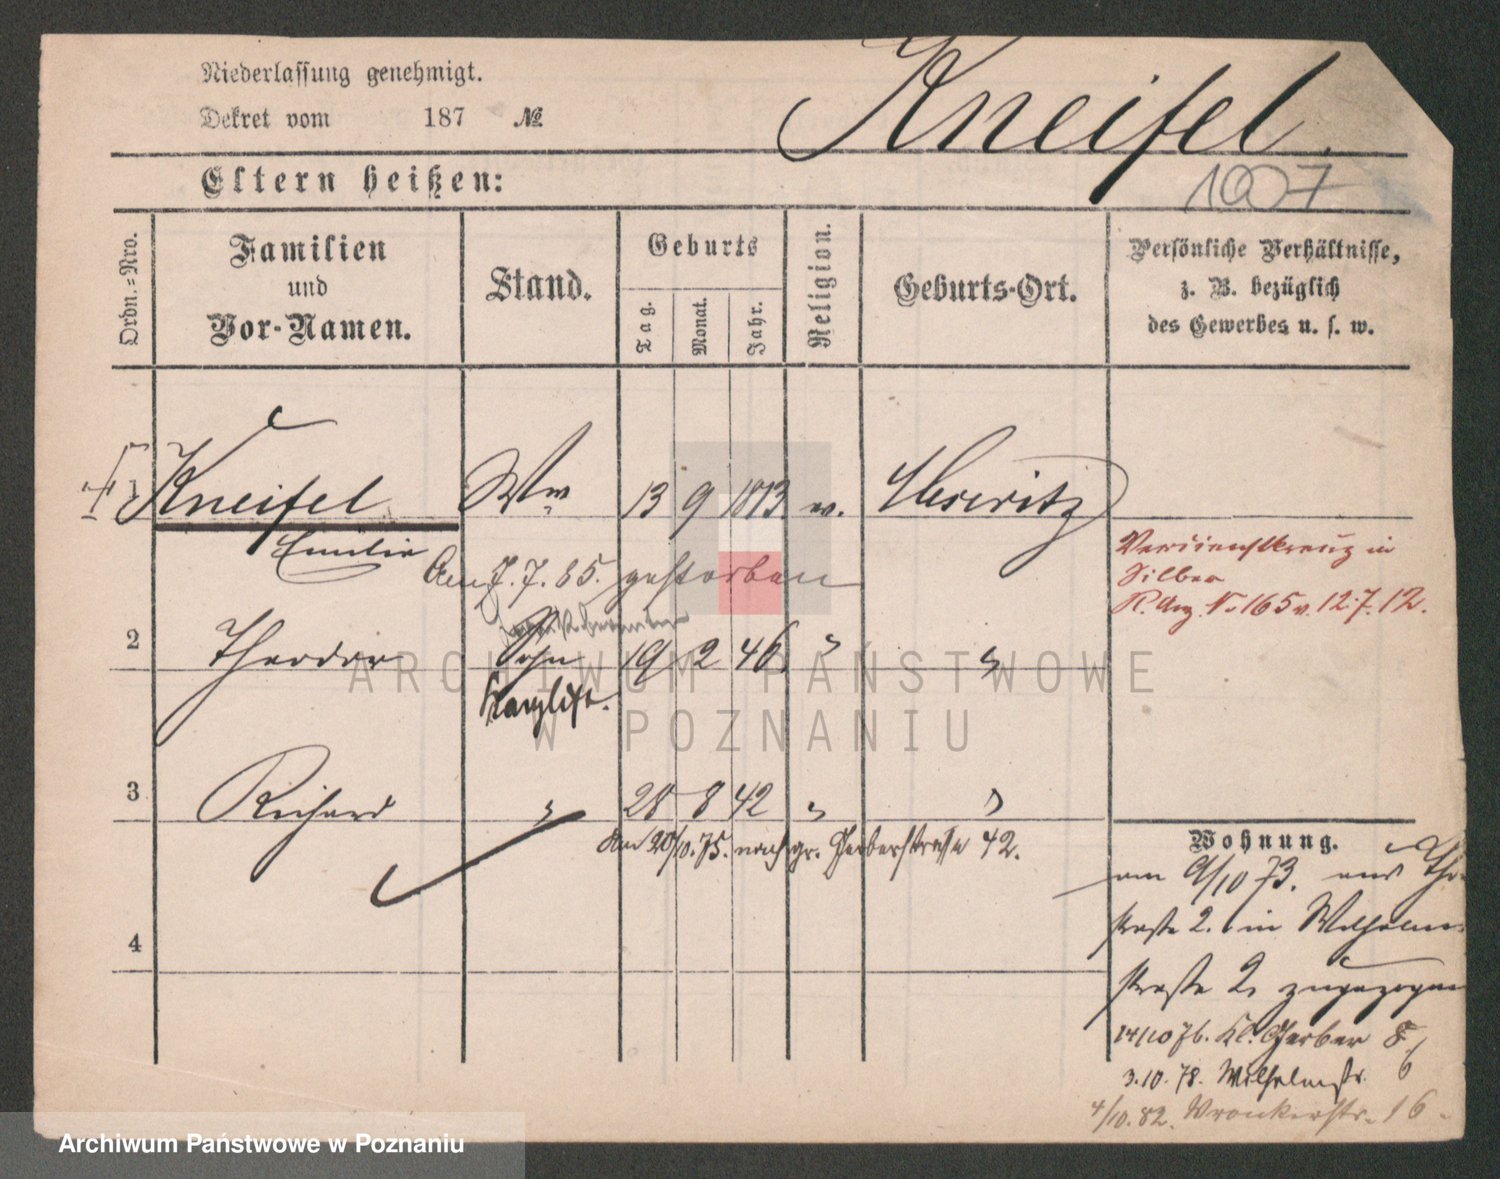 Niederlassung genehmigt.
Dekret vom 187 №
Kneifel.
1007
Eltern heißen:
Ordn.-Nro.
Familien
und
Vor-Namen.
Stand.
Geburts
Tag.
Monat.
Jahr.
Religion.
Geburts-Ort.
Persönliche Verhältnisse,
z. B. bezüglich
des Gewerbes u. s. w.
1 Kneifel Ww 13 9 1813. ev.
Emilie
Am 7. 7. 85. gestorben
Verdienstkreuz in
Silber
R. Anz. No 165 v. 12.7.12.
2 Theodor Sohn 19 2 46. " "
Kanzlist.
3 Richard " 28 8 42 " "
Am 20/10. 75. nach gr. Gerberstraße 42.
4
Wohnung.
am 9/10 73. aus
straße 2. in Wilhelms-
straße 2 zugezogen
14/10 76. Kl. Gerber 8
3.10.78. Wilhelmstr. 6
4/10.82. Wronkerstr. 16.
ARCHIWUM PAŃSTWOWE
W POZNANIU
Archiwum Państwowe w Poznaniu